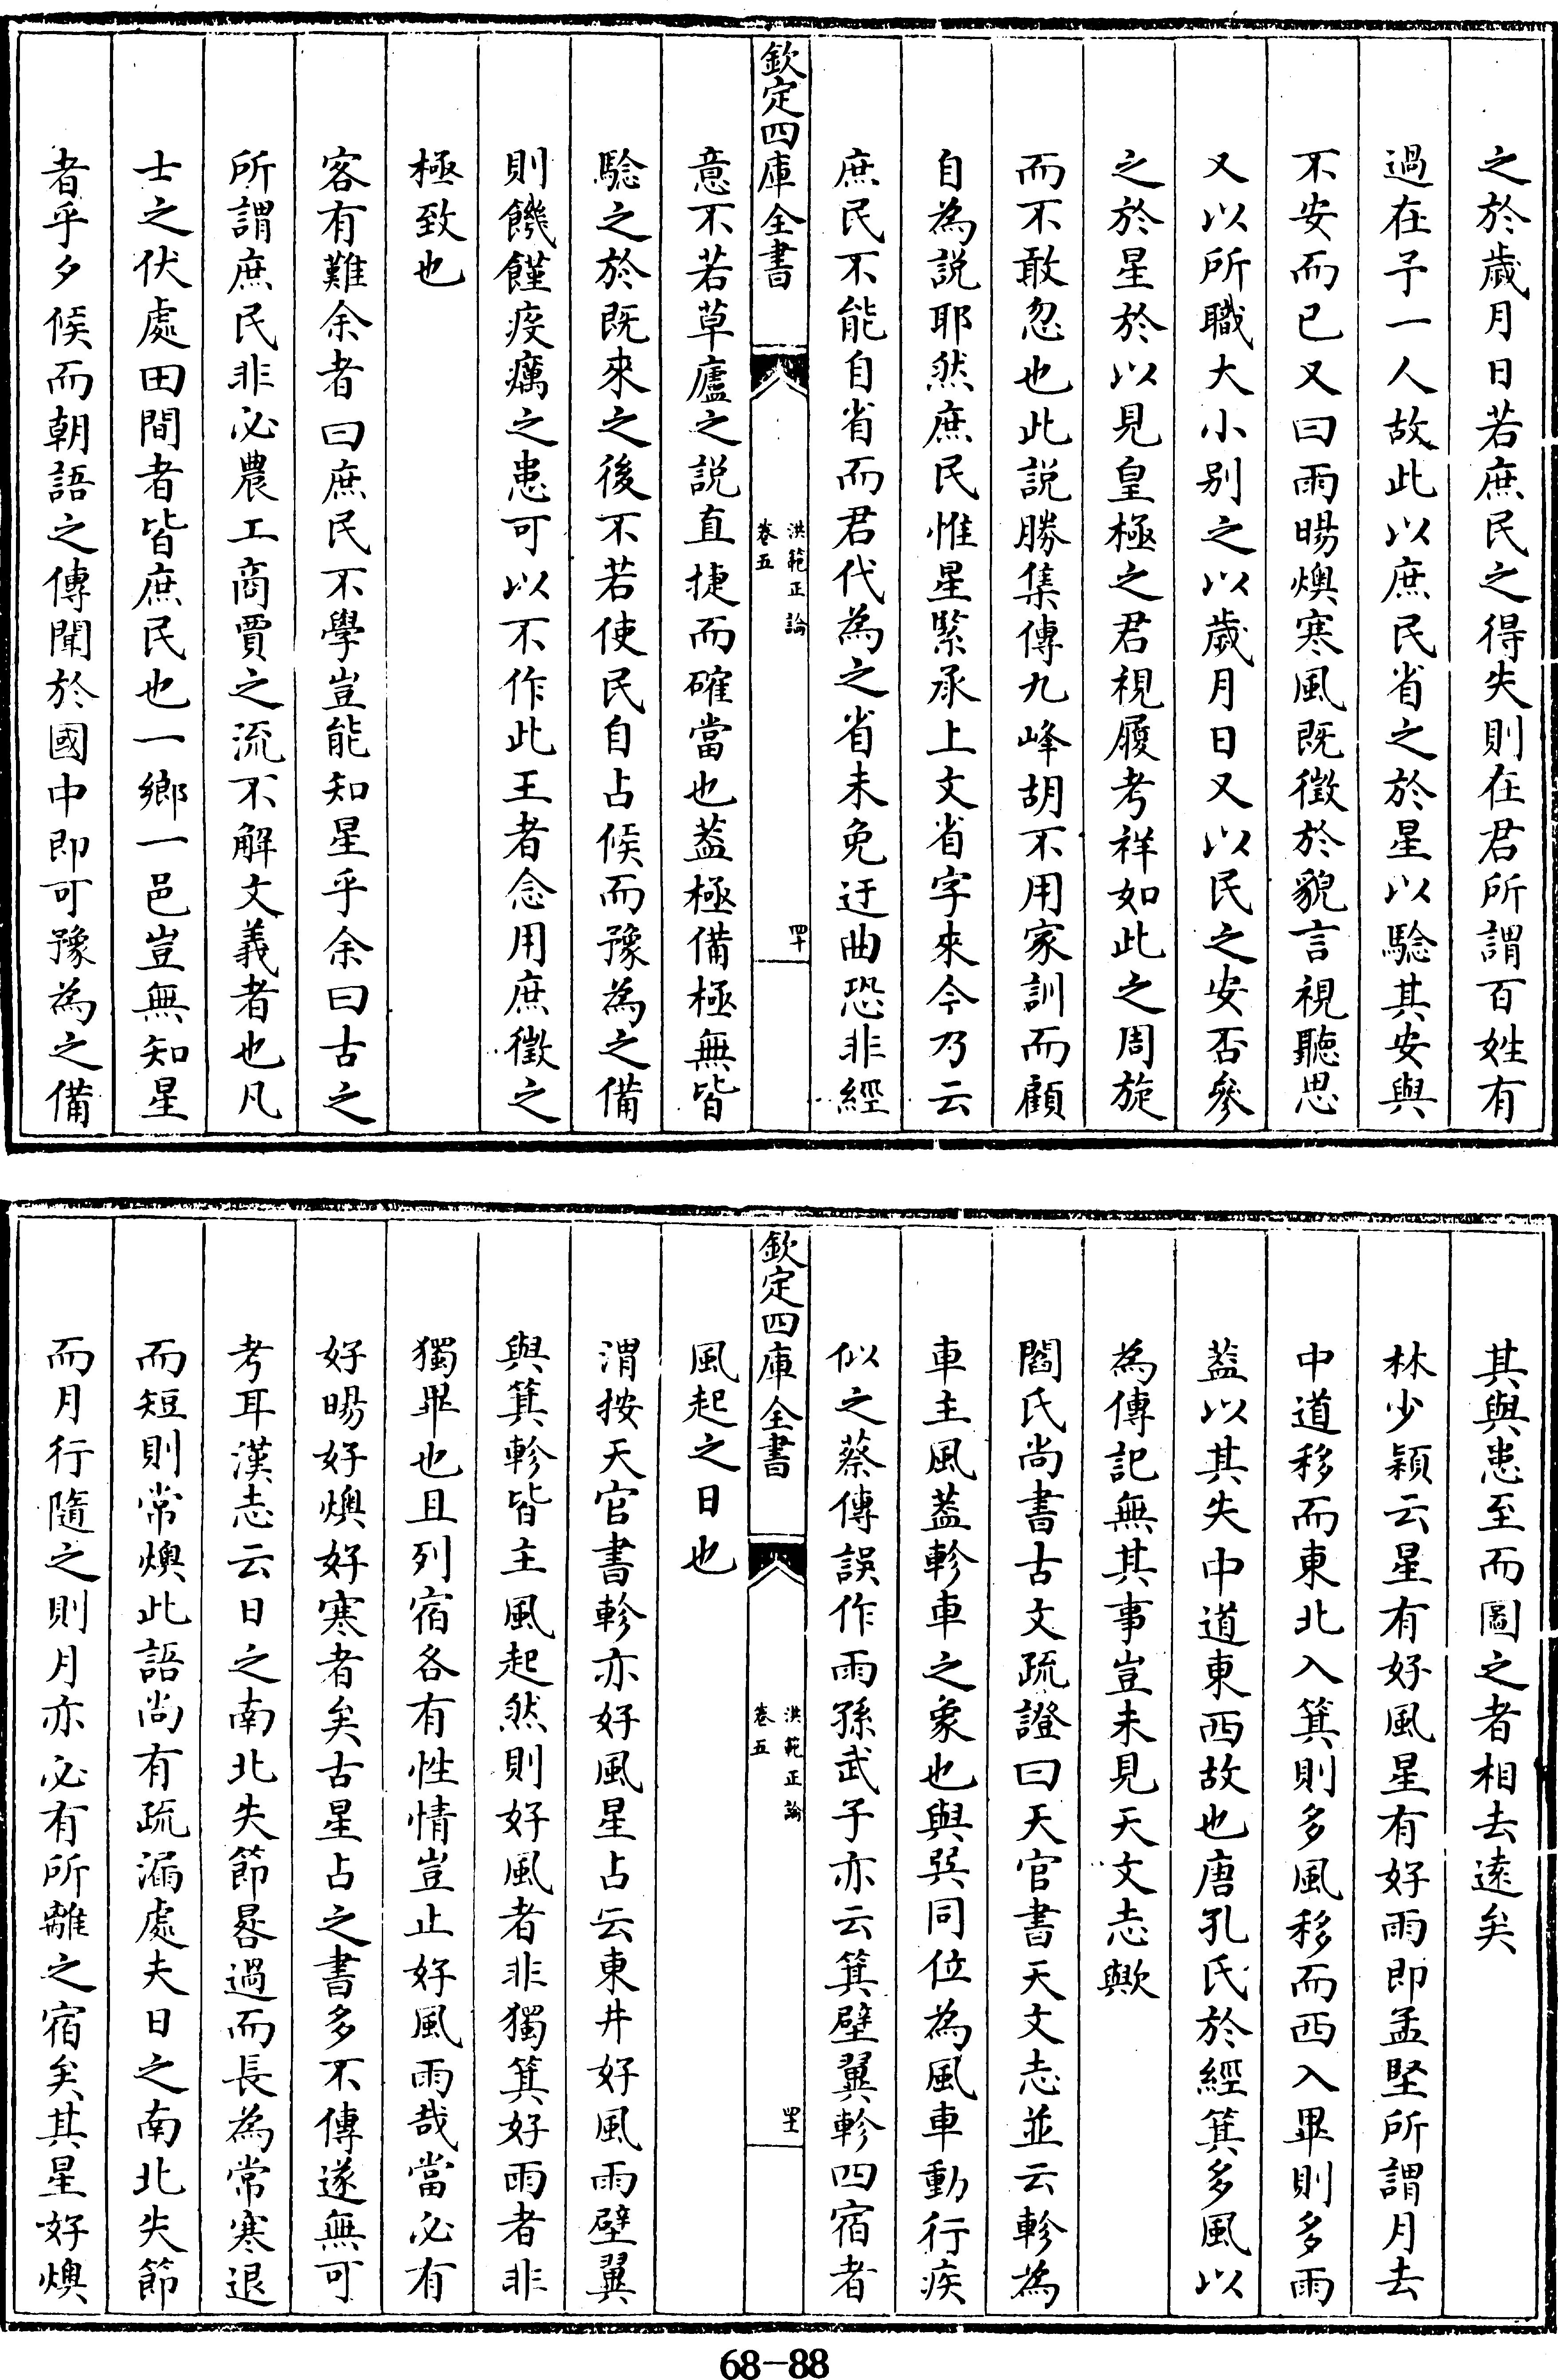 之於歲月日若庶民之得失則在君所謂百姓有
過在予一人故此以庶民省之於星以驗其安與
不安而已又曰雨暘燠寒風既徵於貌言視聽思
又以所職大小别之以歲月日又以民之安否參
之於星於以見皇極之君視履考祥如此之周旋
而不敢忽也此説勝集傳九峰胡不用家訓而顧
自為説耶然庶民惟星緊承上文省字來今乃云
庶民不能自省而君代為之省未免迂曲恐非經
欽定四庫全書
洪範正論
卷五
四十
意不若草廬之説直捷而確當也葢極備極無皆
驗之於既來之後不若使民自占候而豫為之備
則饑饉疫癘之患可以不作此王者念用庶徵之
極致也
客有難余者曰庶民不學豈能知星乎余曰古之
所謂庶民非必農工商賈之流不解文義者也凡
士之伏處田間者皆庶民也一鄉一邑豈無知星
者乎夕候而朝語之傳聞於國中即可豫為之備
其與患至而圖之者相去逺矣
林少穎云星有好風星有好雨即孟堅所謂月去
中道移而東北入箕則多風移而西入畢則多雨
葢以其失中道東西故也唐孔氏於經箕多風以
為傳記無其事豈未見天文志歟
閻氏尚書古文疏證曰天官書天文志並云軫為
車主風葢軫車之象也與巽同位為風車動行疾
似之蔡傳誤作雨孫武子亦云箕壁翼軫四宿者
欽定四庫全書
洪範正論
卷五
四十一
風起之日也
渭按天官書軫亦好風星占云東井好風雨壁翼
與箕軫皆主風起然則好風者非獨箕好雨者非
獨畢也且列宿各有性情豈止好風雨哉當必有
好暘好燠好寒者矣古星占之書多不傳遂無可
考耳漢志云日之南北失節晷過而長為常寒退
而短則常燠此語尚有疏漏處夫日之南北失節
而月行隨之則月亦必有所離之宿矣其星好燠
68-88